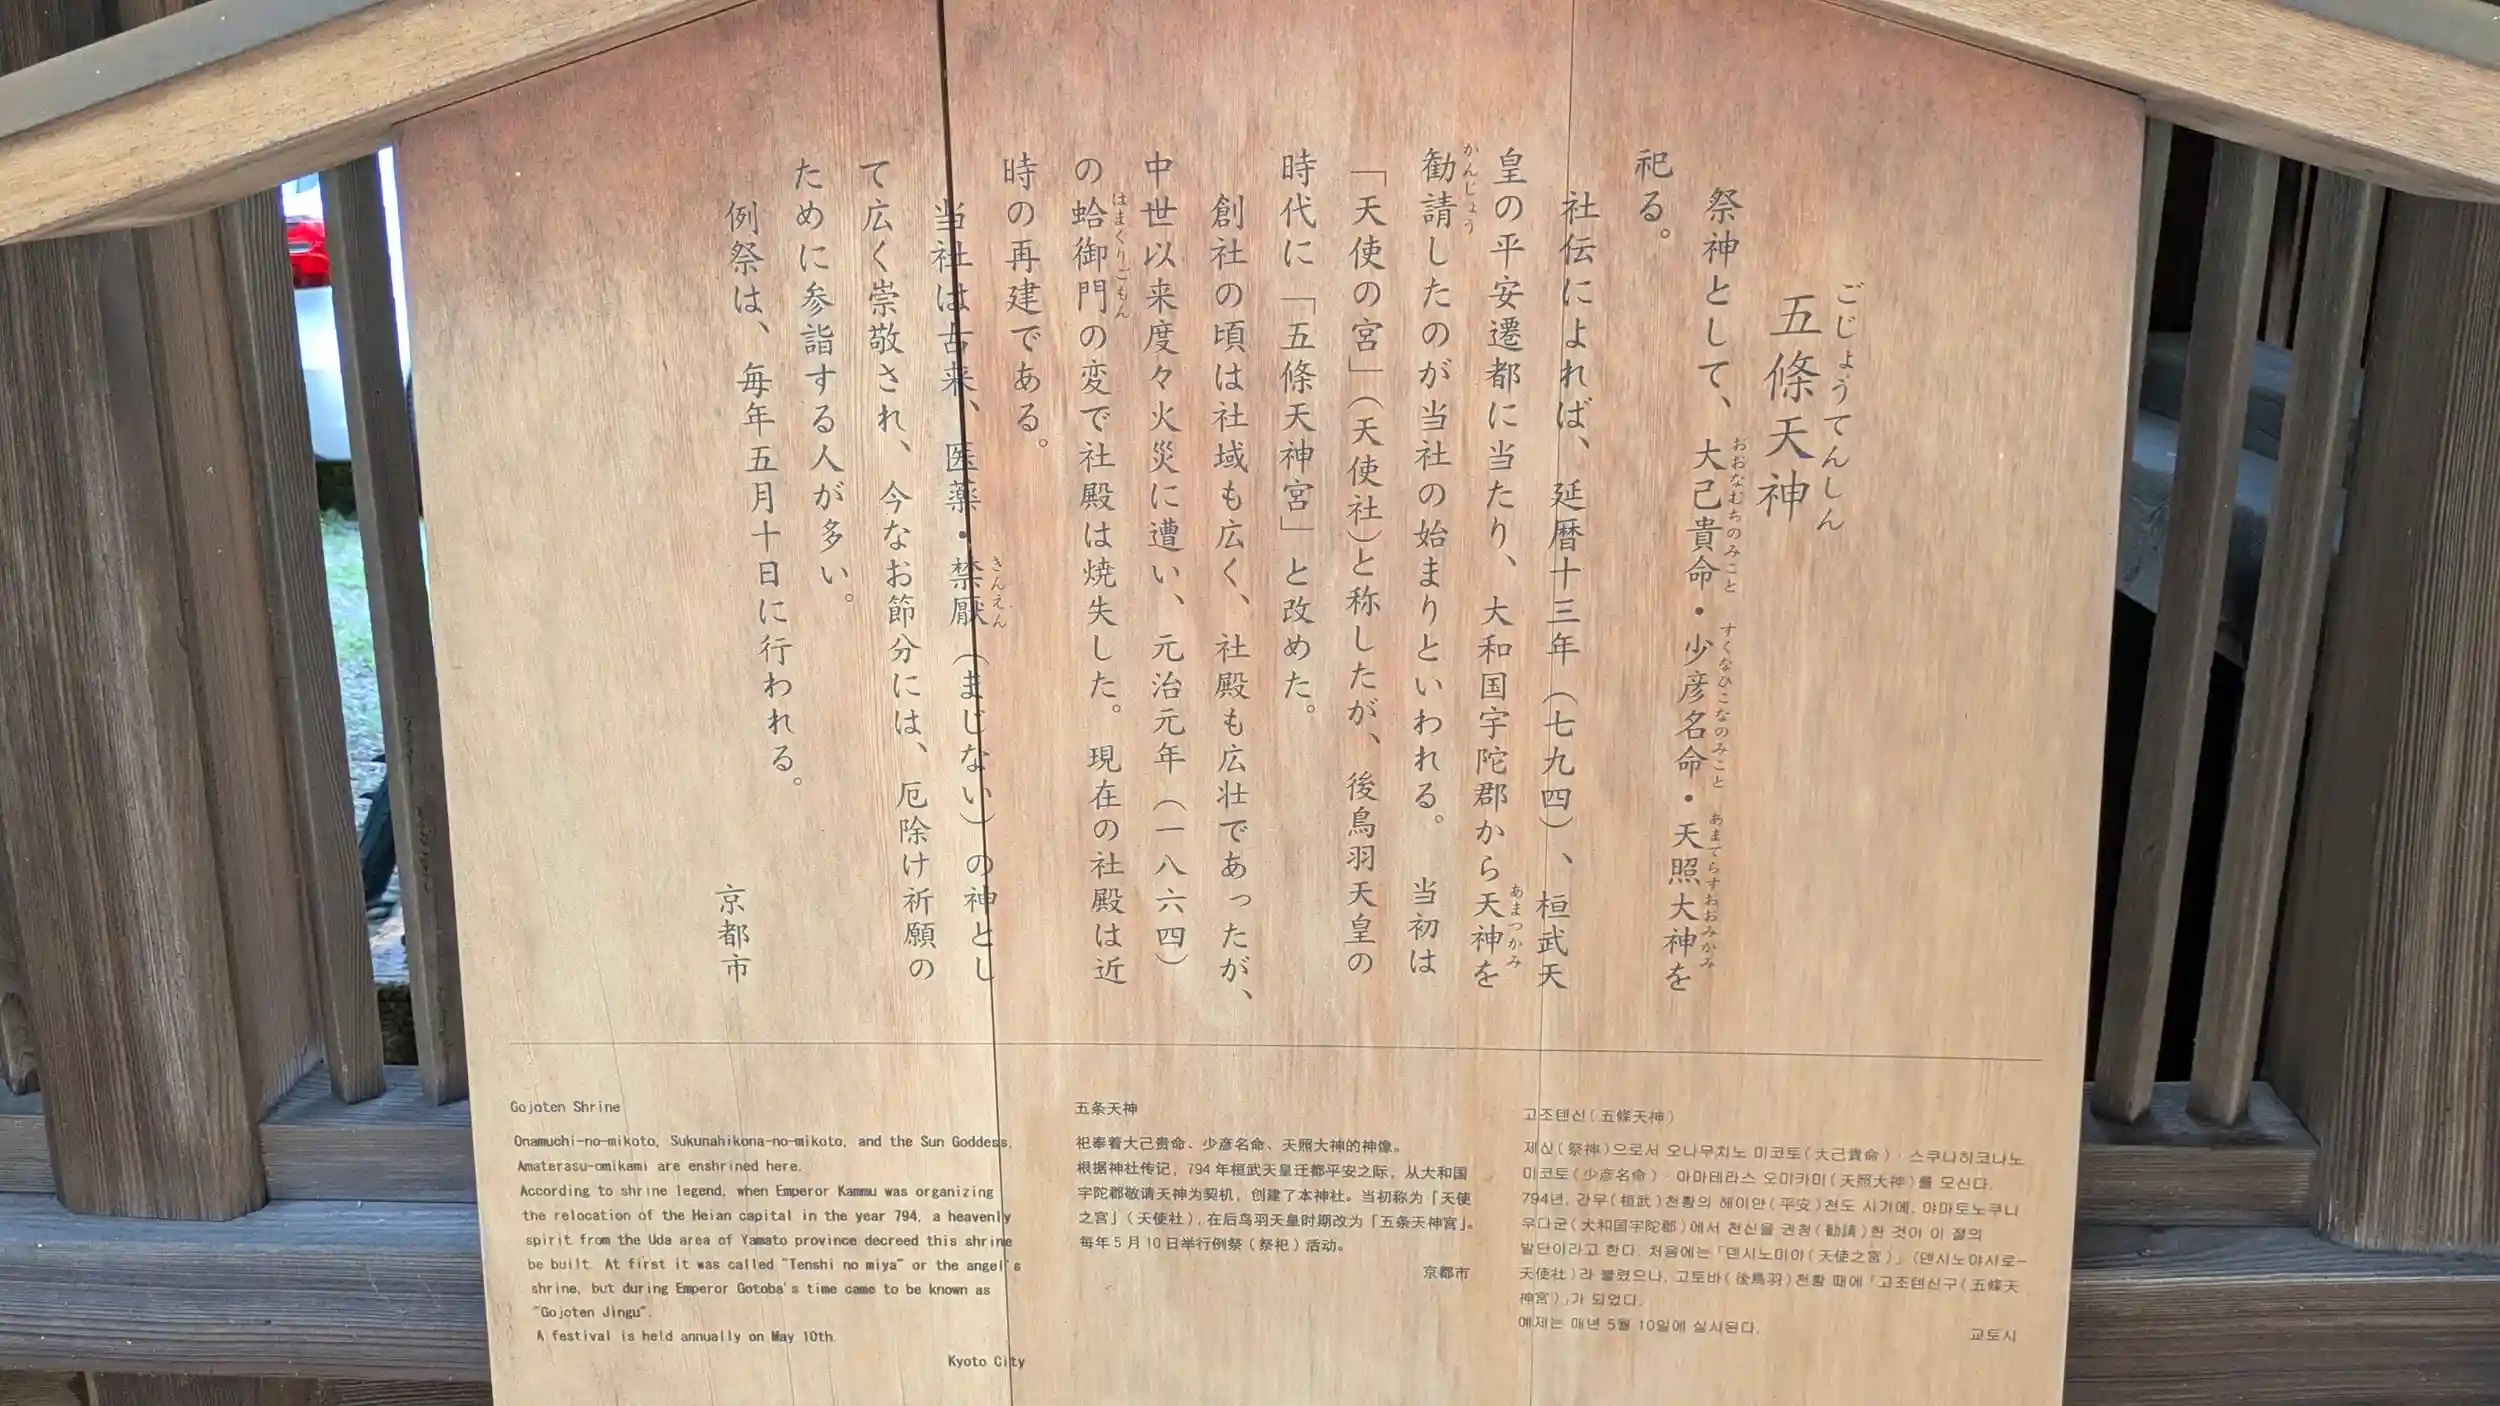 五條天神
ごじょうてんしん
祭神として、大己貴命・少彦名命・天照大神を
おおなむちのみこと
すくなひこなのみこと
あまてらすおおみかみ
祀る。
社伝によれば、延暦十三年（七九四）、桓武天
皇の平安遷都に当たり、大和国宇陀郡から天神を
あまつかみ
勧請したのが当社の始まりといわれる。当初は
かんじょう
「天使の宮」（天使社）と称したが、後鳥羽天皇の
時代に「五條天神宮」と改めた。
創社の頃は社域も広く、社殿も広壮であったが、
中世以来度々火災に遭い、元治元年（一八六四）
の蛤御門の変で社殿は焼失した。現在の社殿は近
はまくりごもん
時の再建である。
当社は古来、医薬・禁厭（まじない）の神とし
きんえん
て広く崇敬され、今なお節分には、厄除け祈願の
ために参詣する人が多い。
例祭は、毎年五月十日に行われる。
京都市
Gojoten Shrine
Onamuchi-no-mikoto, Sukunahikona-no-mikoto, and the Sun Goddess,
Amaterasu-omikami are enshrined here.
According to shrine legend, when Emperor Kammu was organizing
the relocation of the Heian capital in the year 794, a heavenly
spirit from the Uda area of Yamato province decreed this shrine
be built. At first it was called "Tenshi no miya" or the angel's
shrine, but during Emperor Gotoba's time came to be known as
"Gojoten Jingu".
A festival is held annually on May 10th.
Kyoto City
五条天神
祀奉着大己贵命、少彦名命、天照大神的神像。
根据神社传记，794 年桓武天皇迁都平安之际，从大和国
宇陀郡敬请天神为契机，创建了本神社。当初称为「天使
之宫」（天使社），在后鸟羽天皇时期改为「五条天神宫」。
每年 5 月 10 日举行例祭（祭祀）活动。
京都市
고조텐신（五條天神）
제신（祭神）으로서 오나무치노 미코토（大己貴命）·스쿠나히코나노
미코토（少彦名命）·아마테라스 오미카미（天照大神）를 모신다.
794년, 간무（桓武）천황의 헤이안（平安）천도 시기에, 야마토노쿠니
우다군（大和国宇陀郡）에서 천신을 권청（勧請）한 것이 이 절의
발단이라고 한다. 처음에는「덴시노미야（天使之宮）」（덴시노야시로-
天使社）라 불렸으나, 고토바（後鳥羽）천황 때에「고조텐신구（五條天
神宮）」가 되었다.
예제는 매년 5월 10일에 실시된다.
교토시